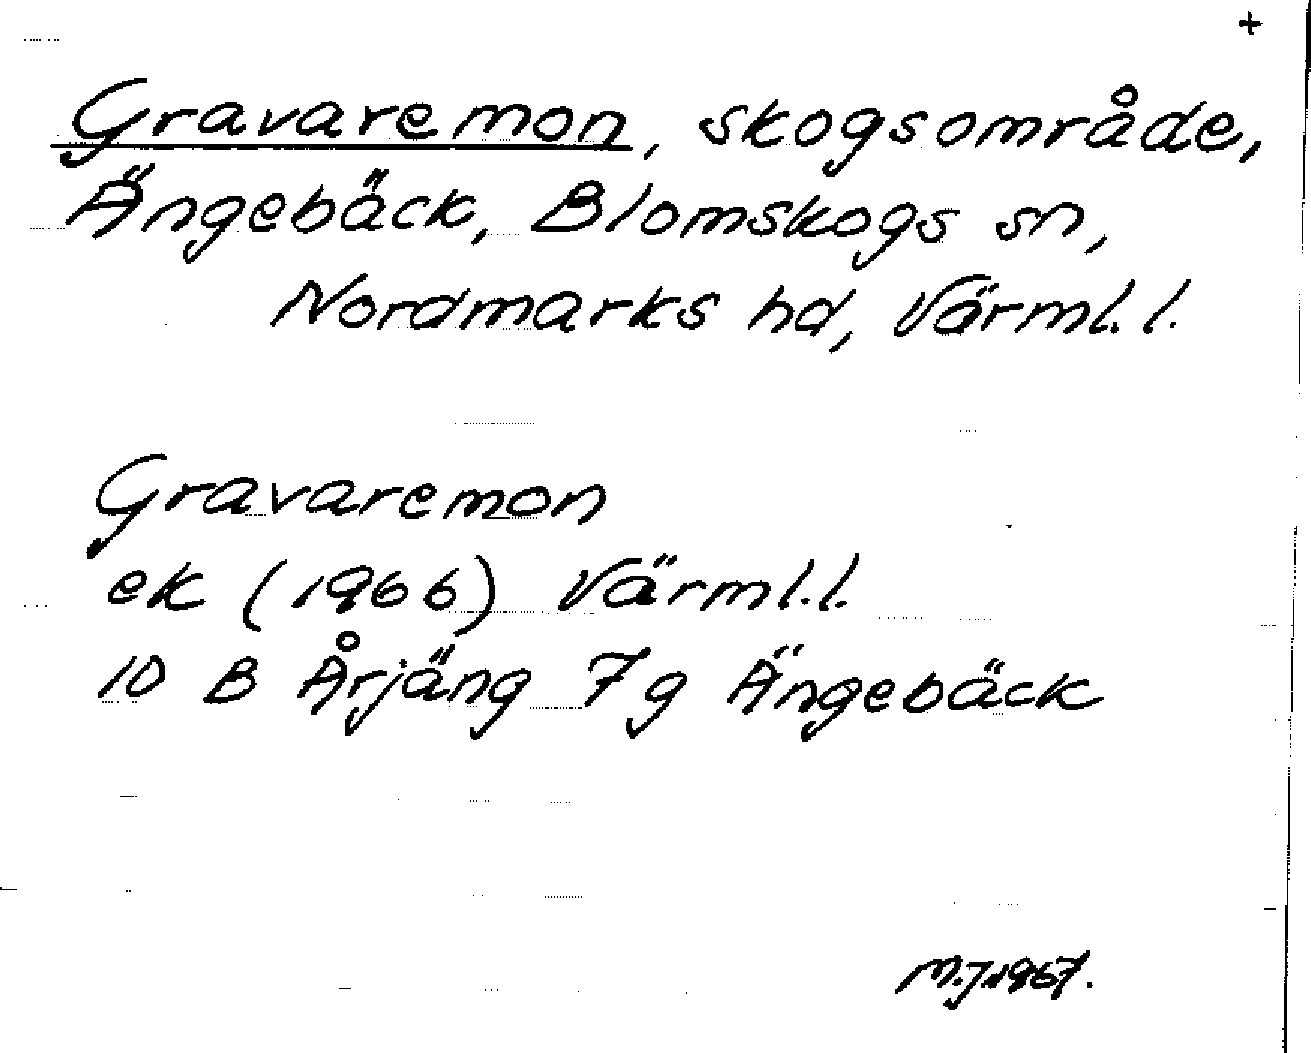 +
Gravaremon, skogsområde,
Ängebäck, Blomskogs sn,
Nordmarks hd, Värml. l.
Gravaremon
ek (1966) Värml. l.
10 B Årjäng 7g Ängebäck
M.J. 1967.